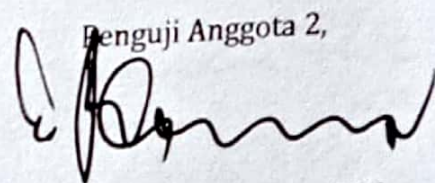 Penguji Anggota 2,